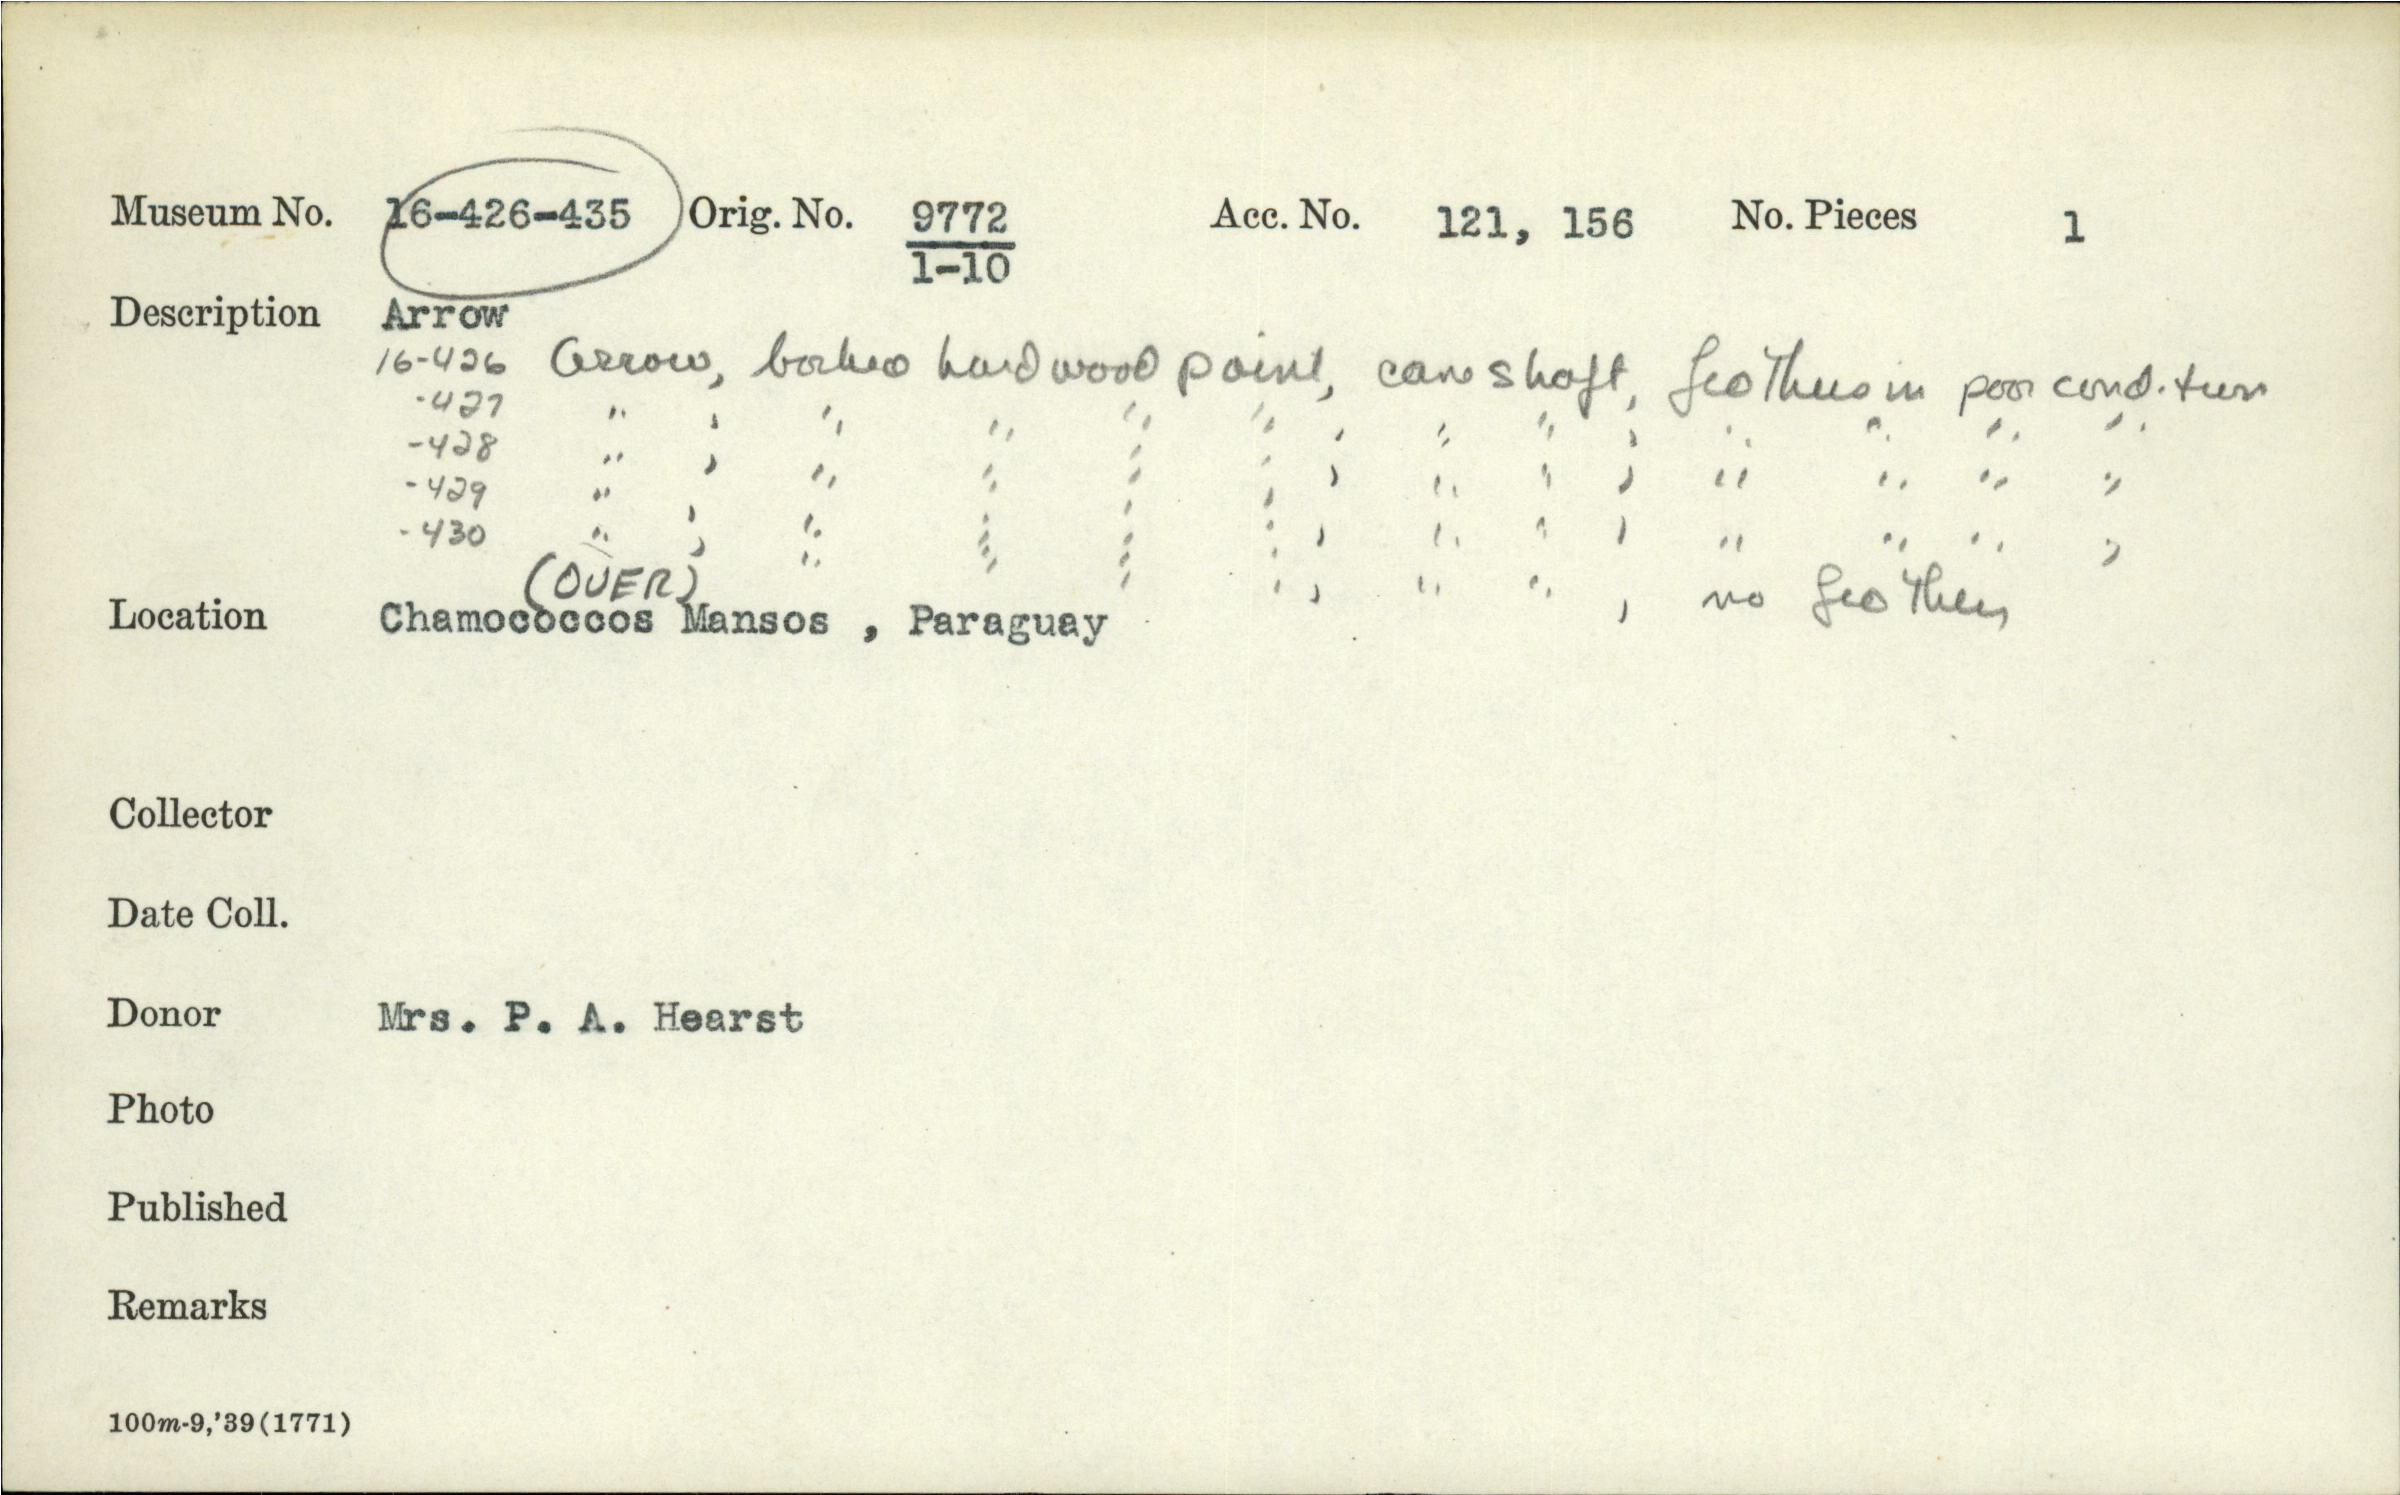 Museum No. 16-426-435 Orig. No. 9772 Acc. No. 121, 156 No. Pieces 1
1-10
Description Arrow
16-426 Arrow, barbed hardwood point, cane shaft, feathers in poor condition
-427 " , " " " " , " " , " " " "
-428 " , " " " " , " " , " " " "
-429 " , " " " " , " " , " " " "
-430 " , " " " " , " " , no feathers
(OVER)
Location Chamococcos Mansos , Paraguay
Collector
Date Coll.
Donor Mrs. P. A. Hearst
Photo
Published
Remarks
100m-9,'39(1771)